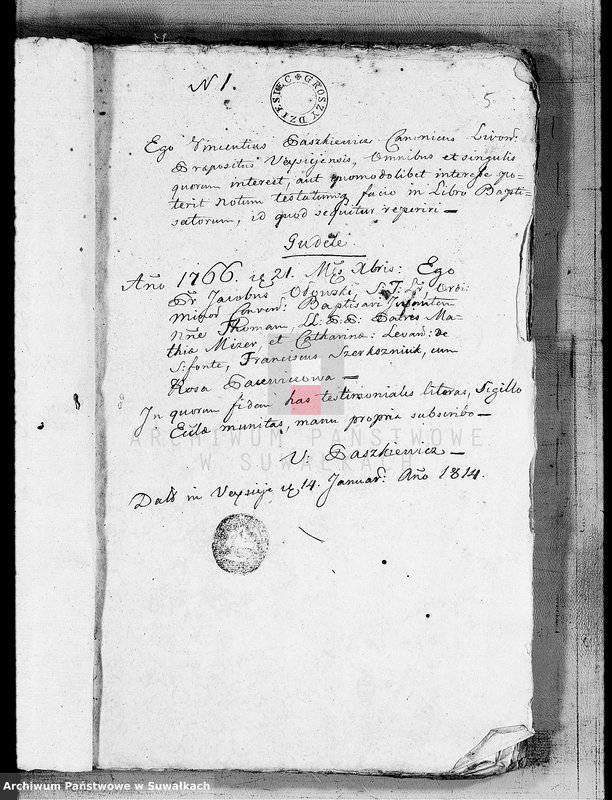 N 1.
GROSZY DZIESIĘC
5
Ego Vincentius Paszkiewicz Canonicus Livon:
Præpositus Veysiejensis, Omnibus et singulis
quorum interest, aut quomodolibet interesse po-
terit notum testatumq facio in Libro Bapti-
satorum, id quod sequitur reperiri —
Gudele
Año 1766. 21. Mẽs Xbris: Ego
Fr Jacobus S: T: Ordi:
minor Convent: Baptisavi Infantem
Nñe Thomam, LL: PP: Patres Ma-
thia Mizer, et Catharina: Levan: de
S: fonte, Franciscus Szerkszniuk, cum
Rosa Pacewiczowa —
In quorum fidem has testimoniales literas, Sigillo
Eccle munitas, manu propria subscribo —
ARCHIWUM PAŃSTWOWE
W SUWAŁKACH
V: Paszkiewicz —
Datt in Veysieje 14. Januar: Año 1814.
Archiwum Państwowe w Suwałkach